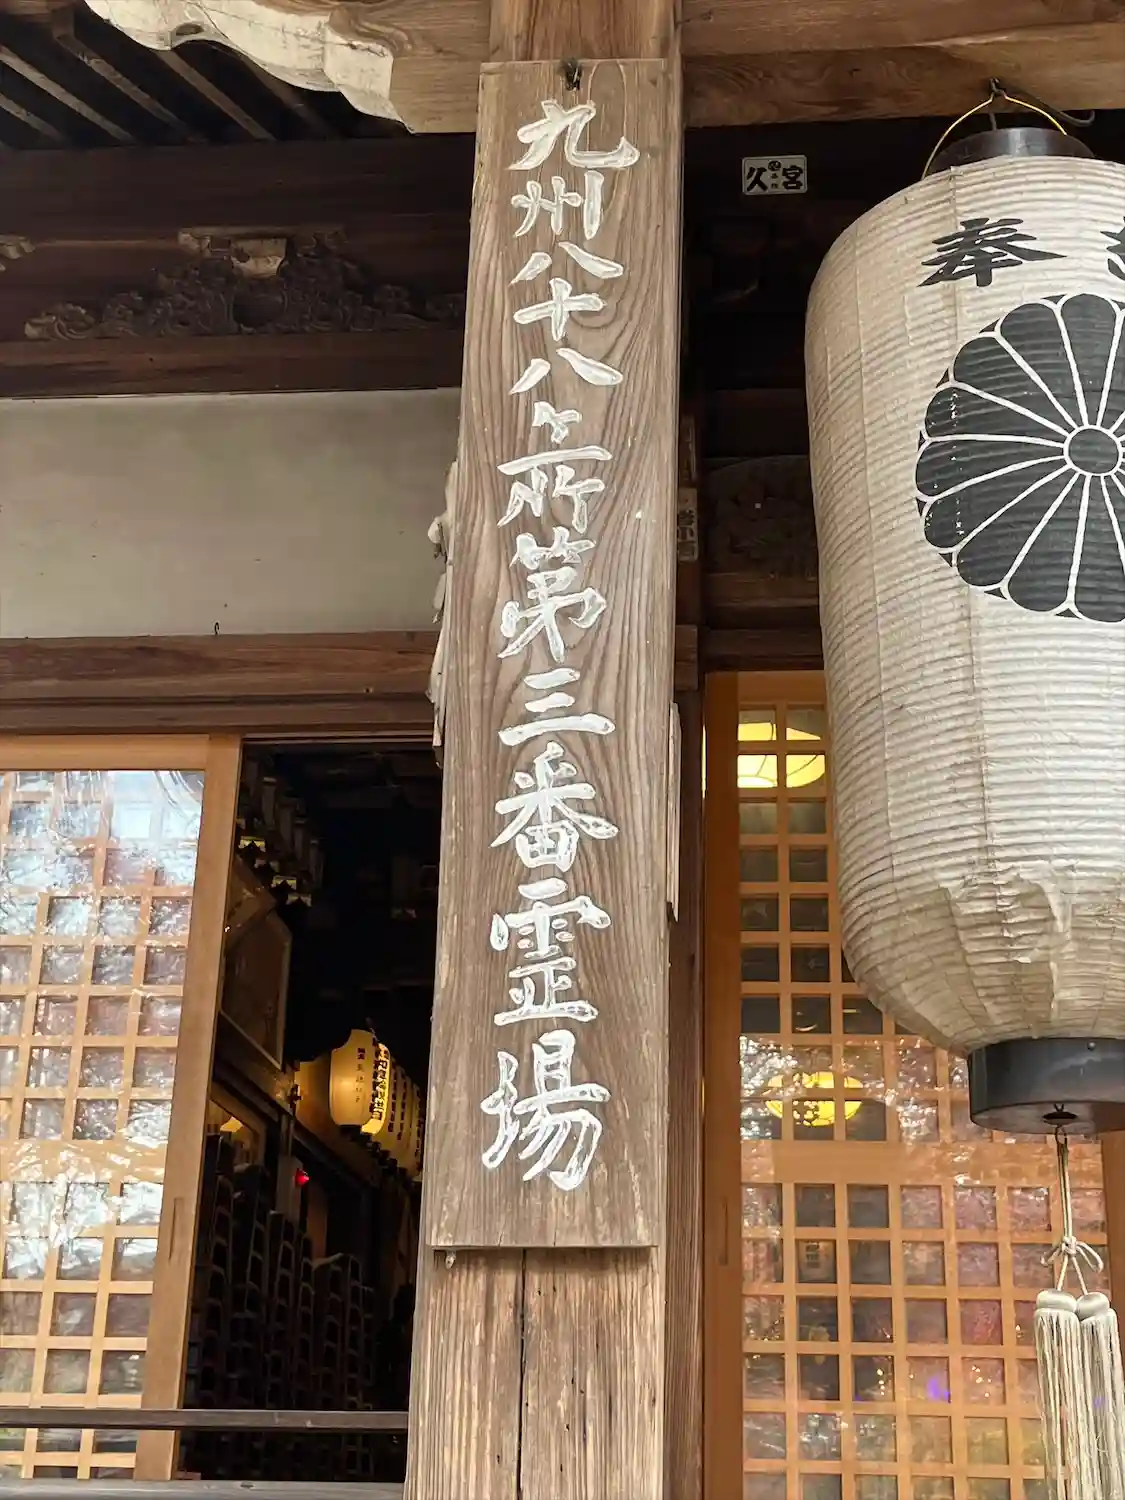 九州八十八ヶ所第三番霊場
奉
久宮